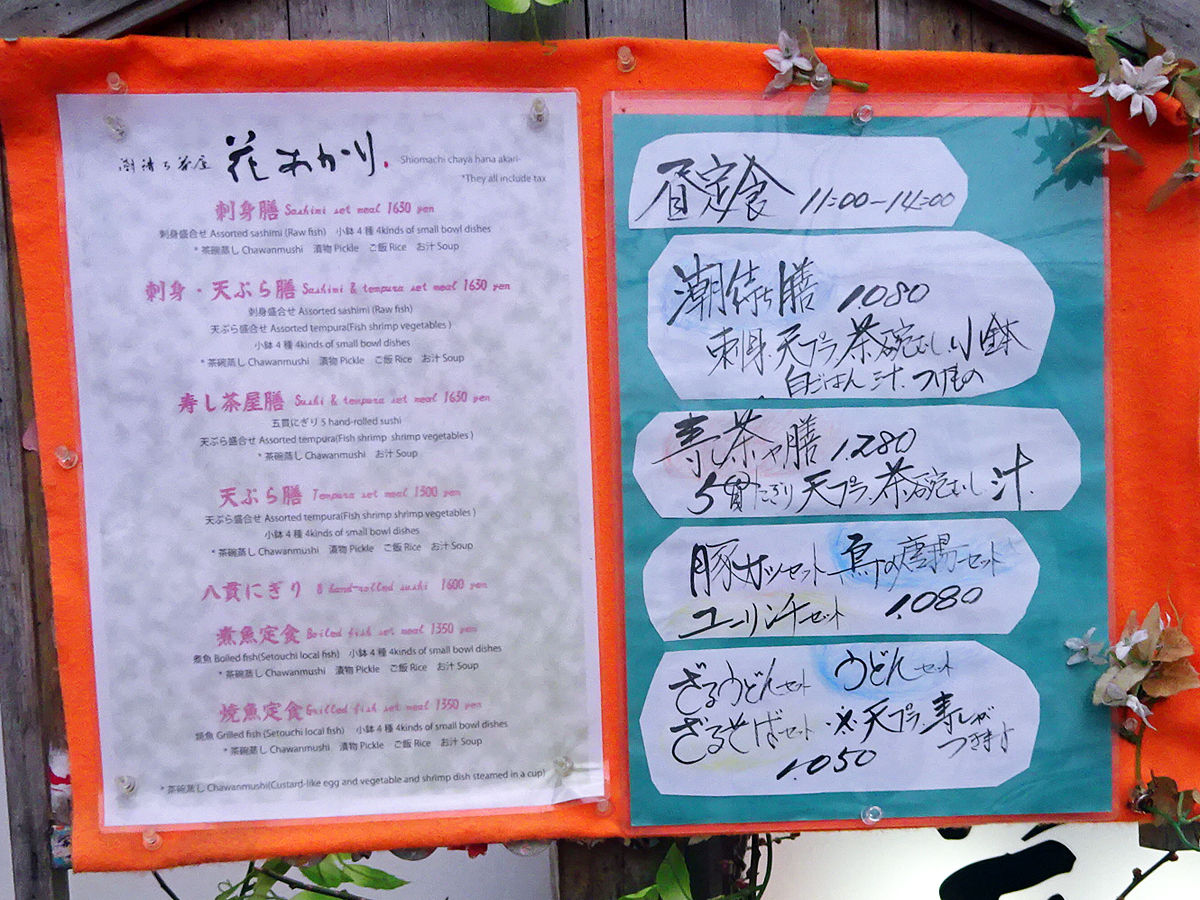 潮待ち茶屋 花あかり. Shiomachi chaya hana akari-
*They all include tax
刺身膳 Sashimi set meal 1650 yen
刺身盛合せ Assorted sashimi (Raw fish) 小鉢４種 4kinds of small bowl dishes
* 茶碗蒸し Chawanmushi 漬物 Pickle ご飯 Rice お汁 Soup
刺身・天ぷら膳 Sashimi & tempura set meal 1650 yen
刺身盛合せ Assorted sashimi (Raw fish)
天ぷら盛合せ Assorted tempura(Fish shrimp vegetables )
小鉢４種 4kinds of small bowl dishes
* 茶碗蒸し Chawanmushi 漬物 Pickle ご飯 Rice お汁 Soup
寿し茶屋膳 Sushi & tempura set meal 1650 yen
五貫にぎり 5 hand-rolled sushi
天ぷら盛合せ Assorted tempura(Fish shrimp shrimp vegetables )
* 茶碗蒸し Chawanmushi お汁 Soup
天ぷら膳 Tempura set meal 1500 yen
天ぷら盛合せ Assorted tempura(Fish shrimp shrimp vegetables )
小鉢４種 4kinds of small bowl dishes
* 茶碗蒸し Chawanmushi 漬物 Pickle ご飯 Rice お汁 Soup
八貫にぎり 8 hand-rolled sushi 1600 yen
煮魚定食 Boiled fish set meal 1350 yen
煮魚 Boiled fish(Setouchi local fish) 小鉢４種 4kinds of small bowl dishes
* 茶碗蒸し Chawanmushi 漬物 Pickle ご飯 Rice お汁 Soup
焼魚定食 Grilled fish set meal 1350 yen
焼魚 Grilled fish (Setouchi local fish) 小鉢４種 4kinds of small bowl dishes
* 茶碗蒸し Chawanmushi 漬物 Pickle ご飯 Rice お汁 Soup
* 茶碗蒸し Chawanmushi(Custard-like egg and vegetable and shrimp dish steamed in a cup)
昼定食 11:00-14:00
潮待ち膳 1.080
刺身.天プラ.茶碗むし.小鉢
白ごはん.汁.つけもの
寿し茶ヤ膳 1.280
5貫にぎり 天プラ.茶碗むし 汁.
豚カツセット 鳥の唐揚ーセット
ユーリンチーセット 1.080
ざるうどんセット うどんセット
ざるそばセット ※天プラ.寿しが
つきます
1.050